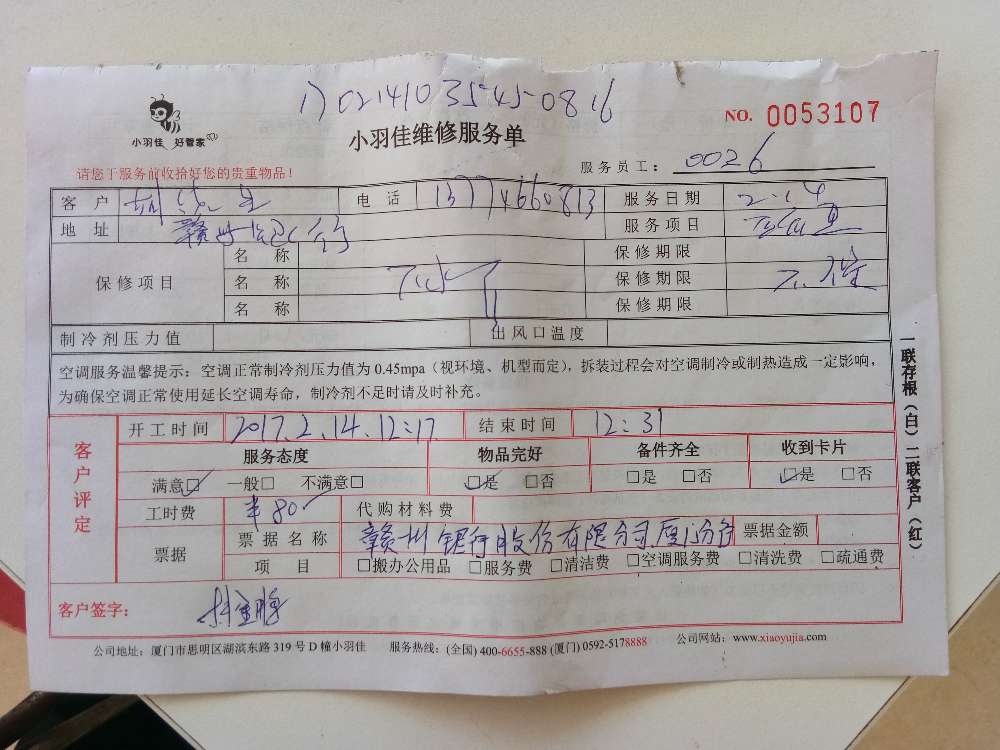 1)02141035-45-0816
小羽佳 好管家
小羽佳维修服务单
NO. 0053107
请您于服务前收拾好您的贵重物品!
服务员工: 0026
客户 电话 13774660813 服务日期 2.14
地址 服务项目
保修项目 名称 保修期限
名称 保修期限
名称 保修期限
制冷剂压力值 出风口温度
空调服务温馨提示:空调正常制冷剂压力值为 0.45mpa(视环境、机型而定),拆装过程会对空调制冷或制热造成一定影响,
为确保空调正常使用延长空调寿命,制冷剂不足时请及时补充。
一联存根(白)二联客户(红)
客户评定
开工时间 2017.2.14.12:17 结束时间 12:31
服务态度 物品完好 备件齐全 收到卡片
满意☑ 一般□ 不满意□ ☑是 □否 □是 □否 ☑是 □否
工时费 ¥80 代购材料费
票据 票据名称 赣州银行股份有限公司厦门分行 票据金额
项目 □搬办公用品 □服务费 □清洁费 □空调服务费 □清洗费 □疏通费
客户签字:
公司地址:厦门市思明区湖滨东路 319 号 D 幢小羽佳 服务热线:(全国) 400-6655-888 (厦门) 0592-5178888 公司网站:www.xiaoyujia.com